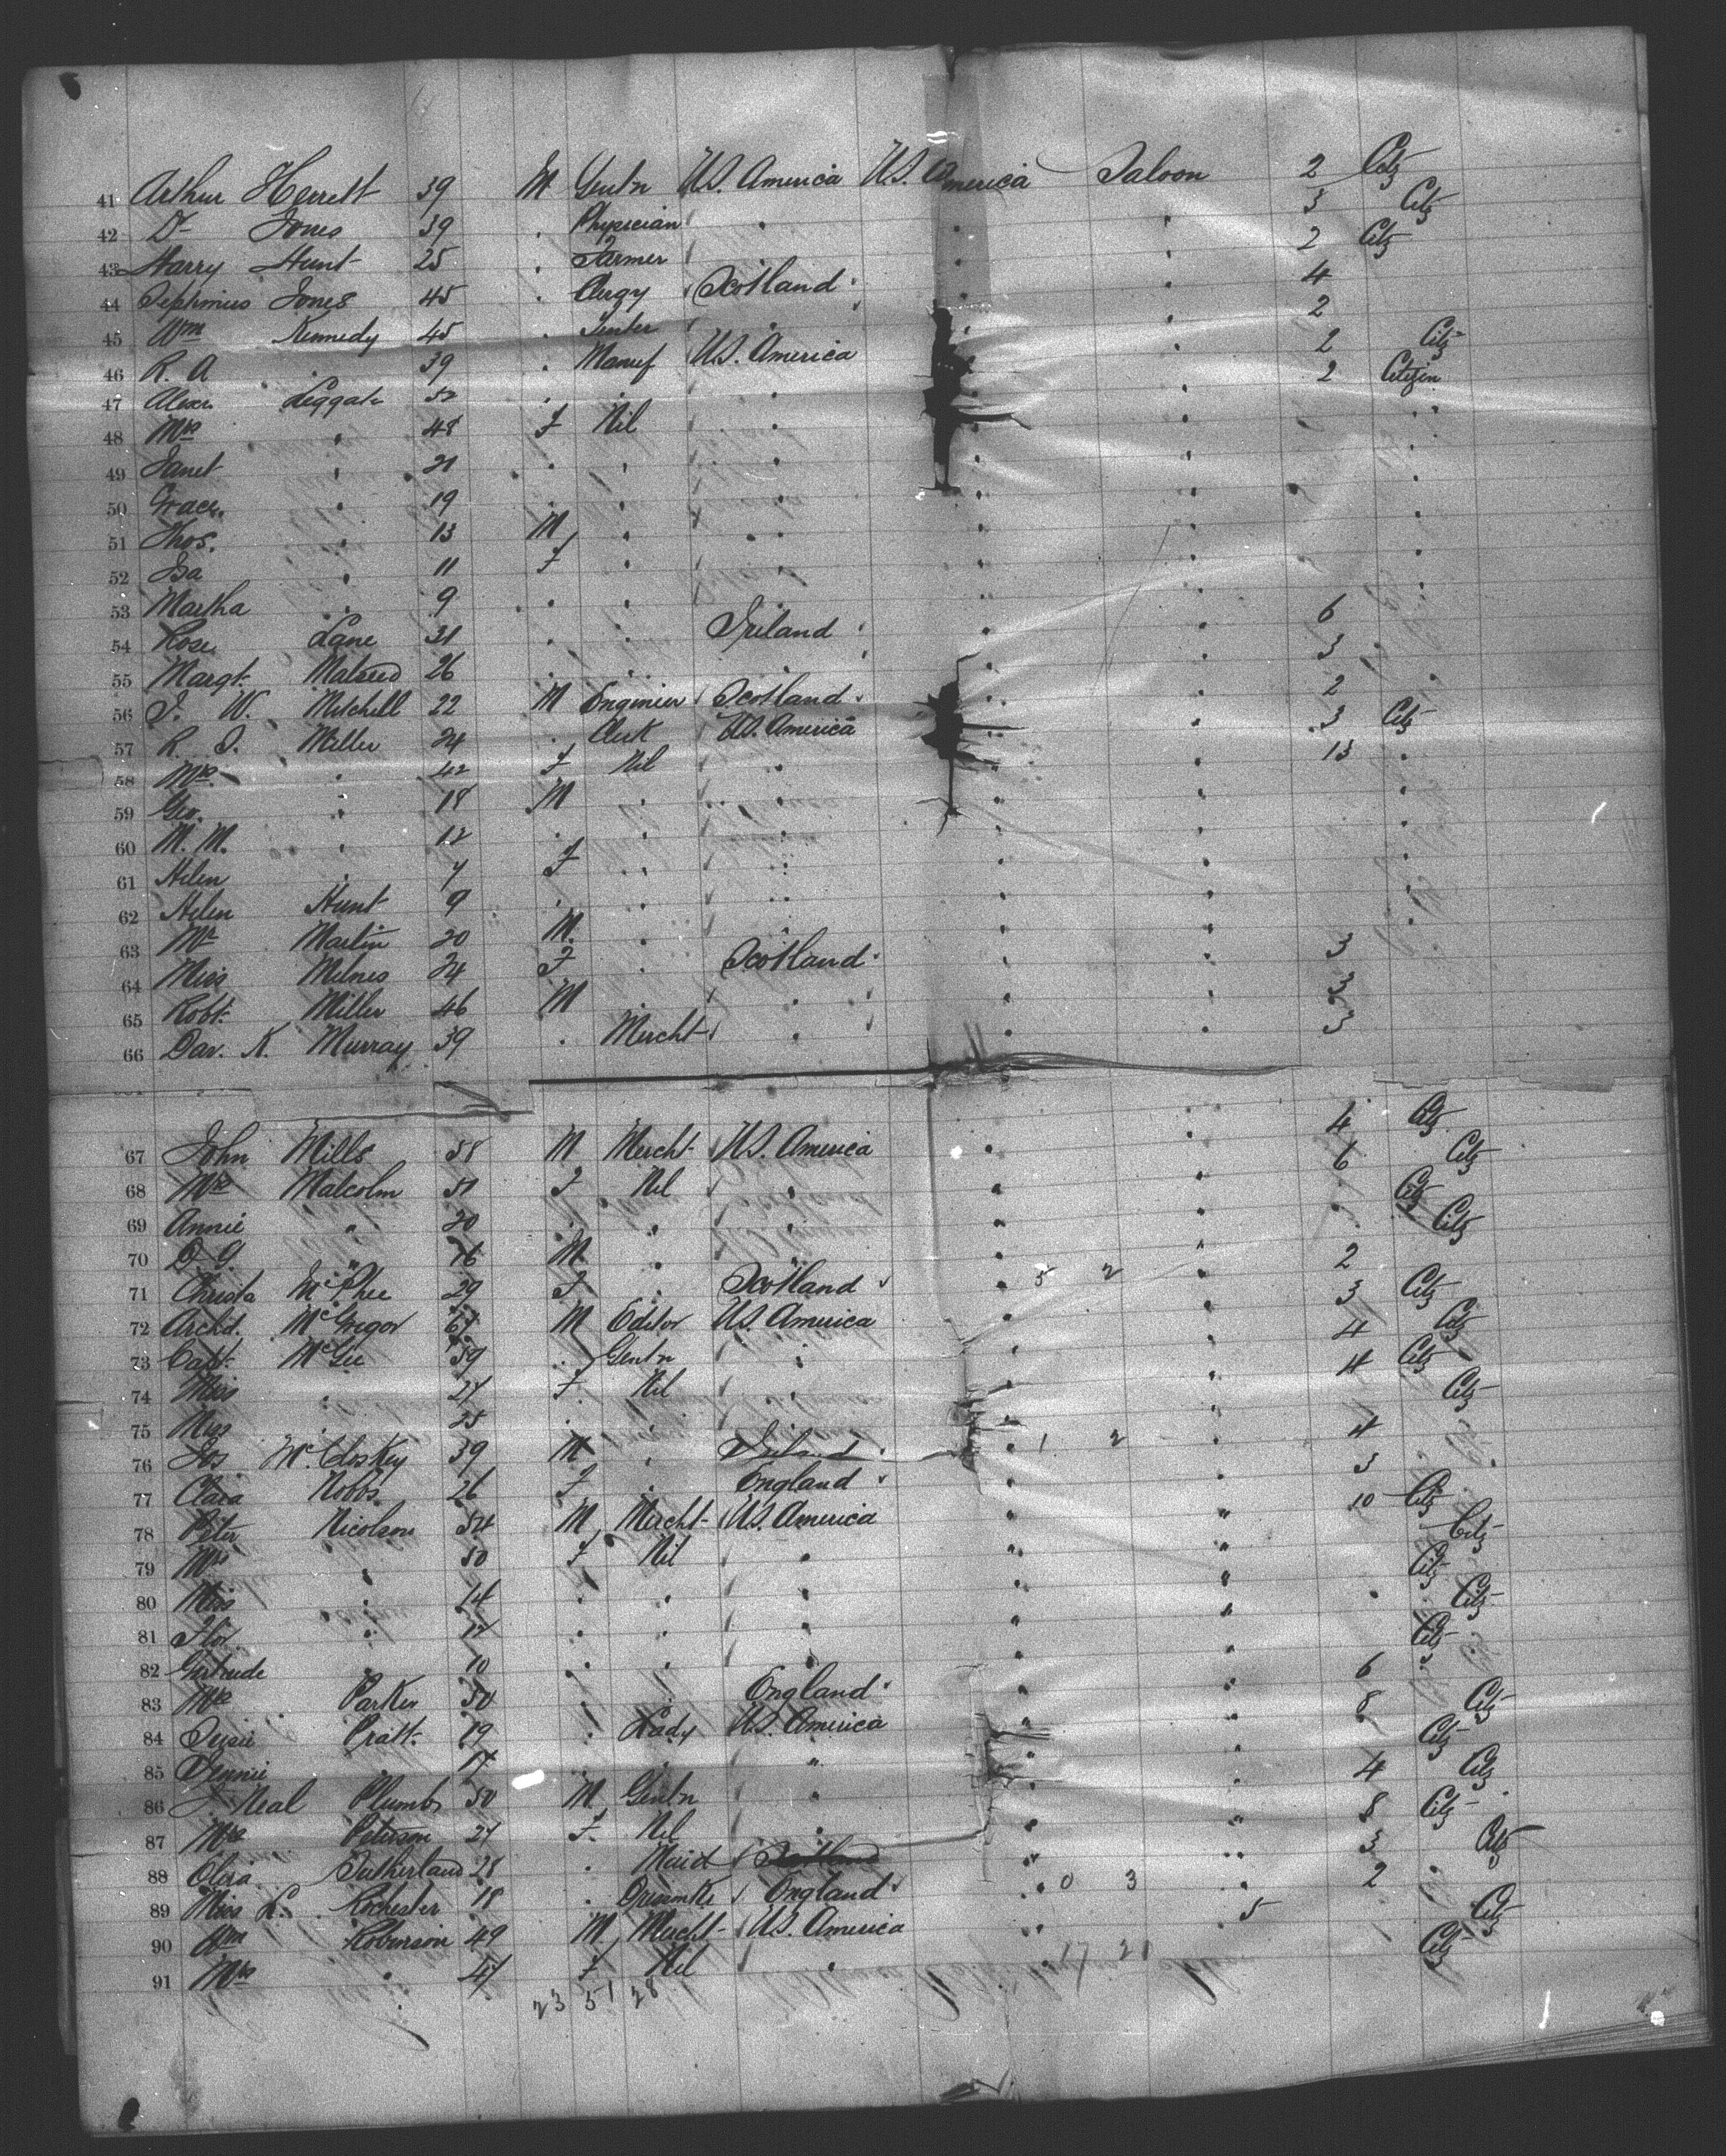 41 Arthur Herrett 39 M Gentn U.S. America U.S. America Saloon 2 Citz
42 Dr Jones 39 . Physician " " " 3 Citz
43 Harry Hunt 25 . Farmer " " 2 Citz
44 Septimus Jones 45 . Clergy Scotland " " 4
45 Wm Kennedy 45 . " " " 2
46 R. A " 39 . Manuf U.S. America " " 2 Citz
47 Alexr. Leggate . . " " " 2 Citizen
48 Mrs " 48 F Nil " " " "
49 Janet " 21 " " " " " "
50 Grace " 19 " " " " " "
51 Thos. " 13 M " " " " "
52 Isa " 11 F " " " " "
53 Martha " 9 " " " " "
54 Rose Lane 31 " " Ireland " " 6
55 Margt. 26 " " " " " 3
56 J. W. Mitchell 22 M Engineer Scotland " " 2 "
57 R. J. Miller 24 . Clerk U.S. America " " 3 Citz
58 Mrs " 42 F Nil " " " 13 "
59 Geo. " 18 M " " " " "
60 M. M. " 12 " " " " " "
61 Helen " 7 F " " " " "
62 Helen Hunt 9 " " " " " "
63 Mr Martin 20 M " " " " "
64 Miss Milnes 24 F " Scotland " " 3
65 Robt. Miller 46 M " " " " 3
66 Dav. K. Murray 39 . Mercht " " " 3
67 John Mills 58 M Mercht U.S. America " " 4 Citz
68 Mrs Malcolm 51 F Nil " " " 6 Citz
69 Annie " 20 " " " " " Citz
70 D. G. " 16 M " " " " " Citz
71 Christa McPhee 29 F " Scotland " 5 2 " 2
72 Archd. McGregor M Editor U.S. America " " 3 Citz
73 Capt. McGee 59 " Gentn " " " 4 Citz
74 Miss " 27 F Nil " " " 4 Citz
75 Miss " 25 " " " " " Citz
76 Jos McCloskey 39 M " Ireland " 1 2 " 4
77 Clara Nobbs 26 F " England " " 3
78 Peter Nicolson 54 M Mercht U.S. America " " 10 Citz
79 Mrs " 50 F Nil " " " Citz
80 Miss " 14 " " " " " Citz
81 Flor. " 12 " " " " " " Citz
82 Gertrude " 10 " " " " " Citz
83 Mrs Parker 50 " " England " " 6
84 Susie Pratt 19 " Lady U.S. America " " 8 Citz
85 Jennie " 17 " " " " Citz
86 J Neal Plumb 50 M Gentn " " " 4 Citz
87 Mrs Peterson 27 F Nil " " " 8 Citz
88 Sutherland 28 . Maid Scotland " " 3 Citz
89 Miss L. Rochester 18 . Dressmkr England " 0 3 " 2
90 Wm Robinson 49 M Mercht U.S. America " 5 Citz
91 Mrs " F Nil " 17 21 Citz
23 51 28